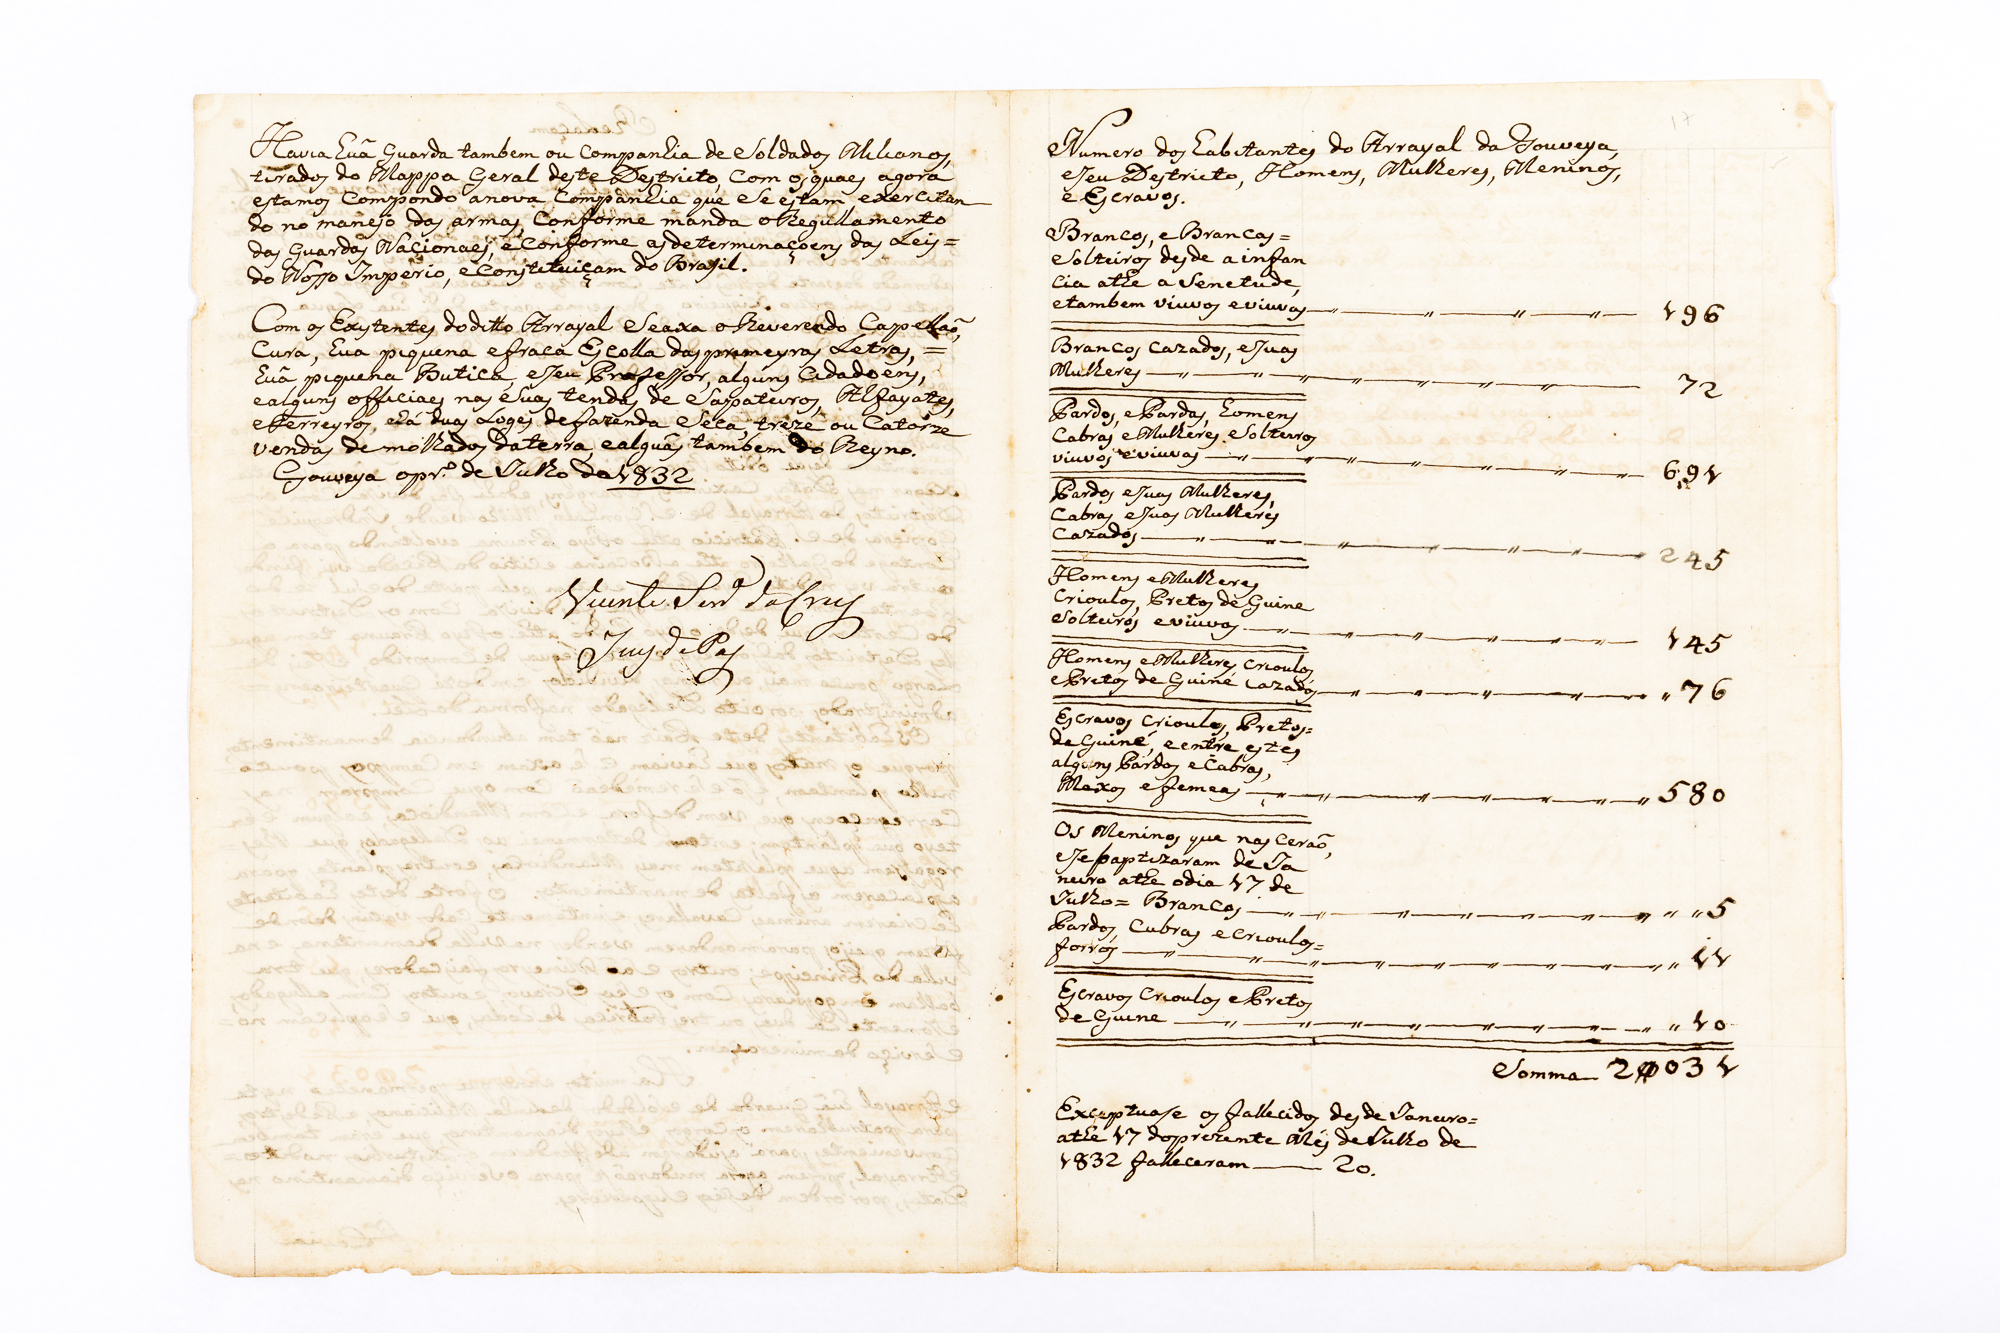 Havia huã Guarda tambem ou Companhia de Soldados Milicianos,
tirados do Mappa Geral deste Destricto, Com os quaes agora
estamos Compondo a nova Companhia que Se estam exercitan
do no manejo das armas, Conforme manda o Regullamento
das Guardas Naçionaes, e Conforme as determinaçoens das Leis=
do Nosso Imperio, e Constituiçam do Brasil.
Com os Exystentes do ditto Arrayal Se axa o Reverendo Cappellaõ,
Cura, hua piquena e fraca Escolla das primeyras Letras,=
huã piquena Butica, e Seu Professor, alguns Cidadoens,
e alguns officiaes nas Suas tendas de Sapateiros, Alfayates,
e Ferreyros, e há duas Loges de fazenda Seca, treze ou Catorze
vendas de molhados da terra, e alguãs tambem do Reyno.
Gouveya o pr.º de Julho de 1832
Vicente Ferr.ª da Crus
Juis de Pas
17
Numero dos habitantes do Arrayal da Gouveya,
e Seu Destricto, Homens, Mulheres, Meninos,
e Escravos.
Brancos, e Brancas=
Solteiros desde a infan
cia athe a Senetude,
e tambem viuvos e viuvas 196
Brancos Cazados, e Suas
Mulheres 72
Pardos, e Pardas, homens
Cabras e Mulheres Solteiros
viuvos e viuvas 691
Pardos e Suas Mulheres,
Cabras e Suas Mulheres
Cazados 245
Homens e Mulheres
Crioulos, Pretos de Guine
Solteiros e viuvos 145
Homens e Mulheres Crioulos
e Pretos de Guiné Cazados " 76
Escravos Crioulos, Pretos=
de Guiné, e entre estes
alguns Pardos e Cabras,
Maxos e femeas " 580
Os Meninos que nasceraõ,
e Se baptizaram de Ja
neiro athe o dia 17 de
Julho= Brancos " " 5
Pardos, Cabras e Crioulos=
forros " " 11
Escravos Crioulos e Pretos
de Guine " 10
Somma 2031
Exceptuase os fallecidos desde Janeiro=
athe 17 do prezente Mês de Julho de
1832 falleceram 20.